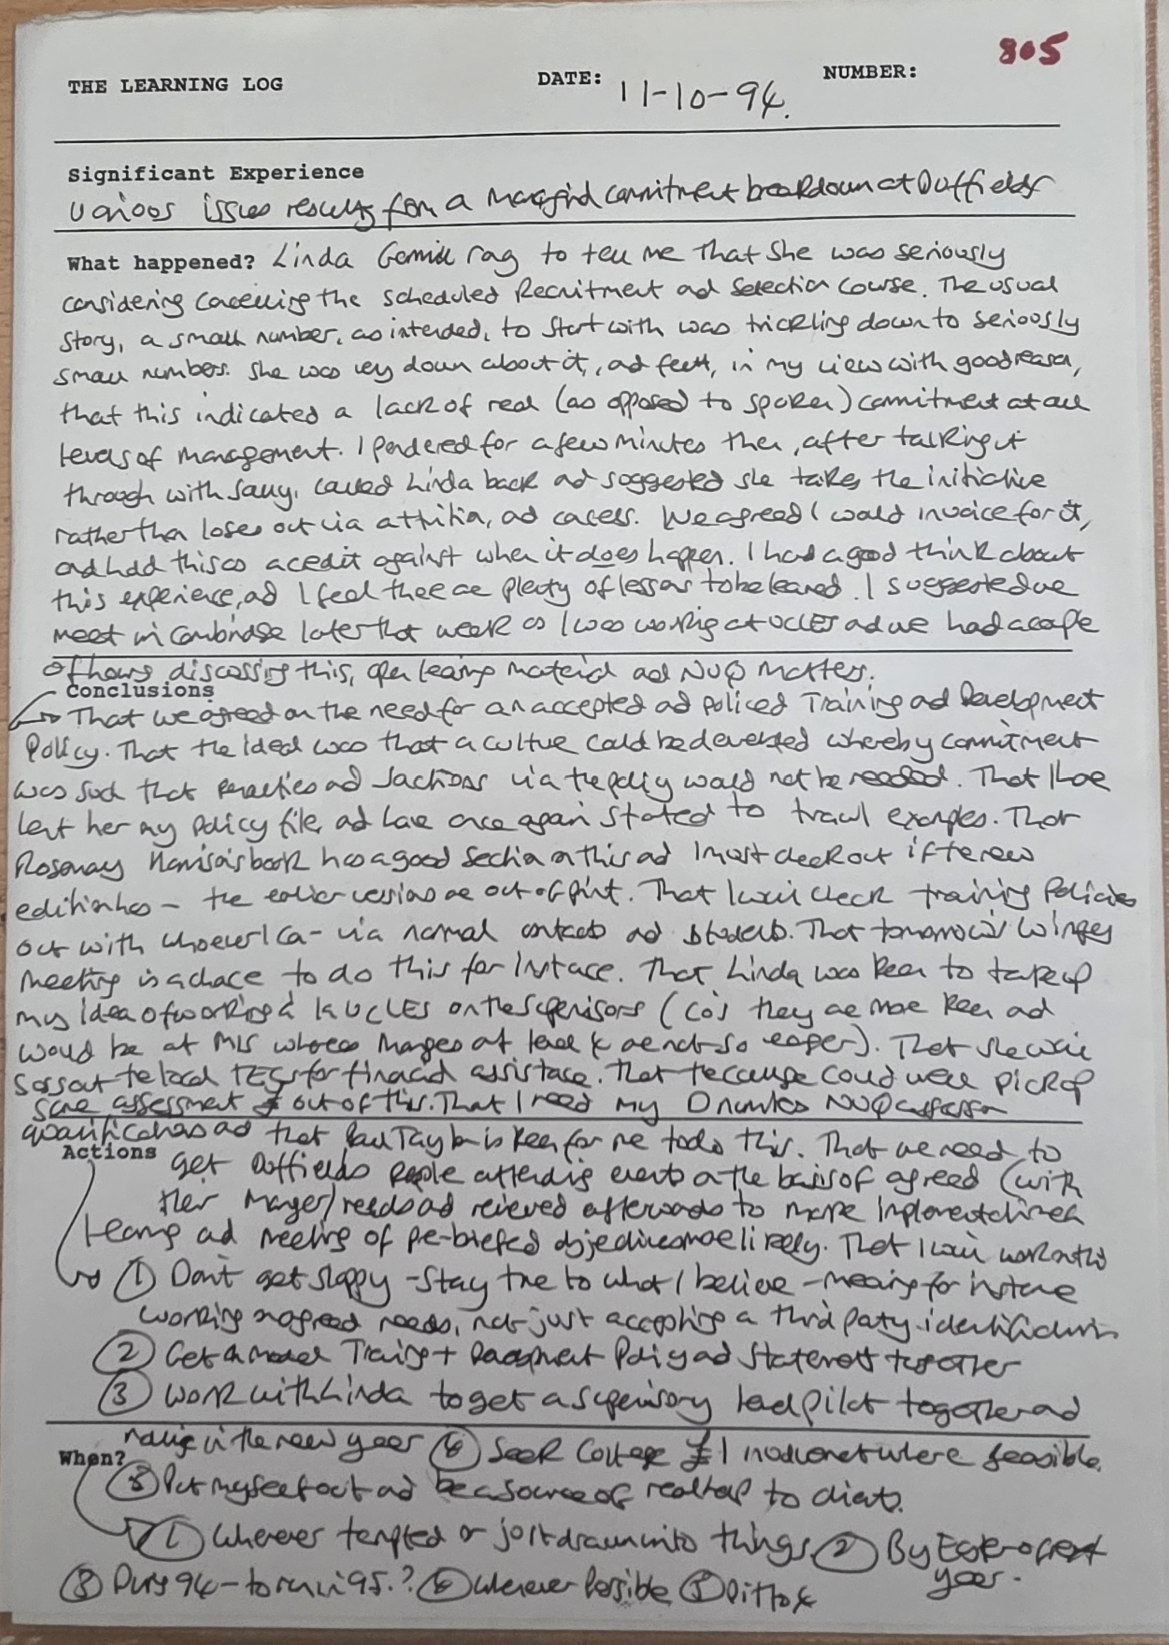 805
THE LEARNING LOG DATE: 11-10-94. NUMBER:
Significant Experience
Various issues results from a managerial commitment breakdown at Duffields
What happened? Linda Gemmill rang to tell me that she was seriously
considering cancelling the scheduled Recruitment and Selection course. The usual
story, a small number, as intended, to start with was trickling down to seriously
small numbers. She was very down about it, and felt, in my view with good reason,
that this indicated a lack of real (as opposed to spoken) commitment at all
levels of management. I pondered for a few minutes then, after talking it
through with Sally, called Linda back and suggested she takes the initiative
rather than loses out via attrition, and cancels. We agreed I would invoice for it,
and hold this as a credit against when it does happen. I had a good think about
this experience, and I feel there are plenty of lessons to be learned. I suggested we
meet in Cambridge later that week as I was working at UCLES and we had a couple
of hours discussing this, open learning material and NVQ matters.
Conclusions
That we agreed on the need for an accepted and policed Training and Development
Policy. That the ideal was that a culture could be developed whereby commitment
was such that penalties and sanctions via the policy would not be needed. That I have
lent her my policy file, and have once again started to trawl examples. That
Rosemary Harrison's book has a good section on this and I must check out if the new
edition has - the earlier versions are out of print. That I will check training policies
out with whoever I can - via normal contacts and students. That tomorrow's
meeting is a chance to do this for instance. That Linda was keen to take up
my idea of working à la UCLES on the supervisors (cos they are more keen and
would be at MIS whereas Managers at level 4 are not so eager). That she will
suss out the local TECs for financial assistance. That the college could well pick up
some assessment £ out of this. That I need my D number NVQ assessor
qualifications and that Paul Taylor is keen for me to do this. That we need to
Actions
get Duffields people attending events on the basis of agreed (with
their manager) needs and reviewed afterwards to make implementation of
learning and meeting of pre-briefed objectives more likely. That I will work on this
① Don't get sloppy - stay true to what I believe - meaning for instance
working on agreed needs, not just accepting a third party identification
② Get a model Training + Development Policy and statement together
③ Work with Linda to get a supervisory lead pilot together and
running in the new year ④ Seek College £ involvement where feasible.
When?
⑤ Put myself out and be a source of to clients.
① Whenever tempted or just drawn into things ② By
year.
③ During 94 - to run in 95.? ④ Wherever Possible ⑤ Ditto 4